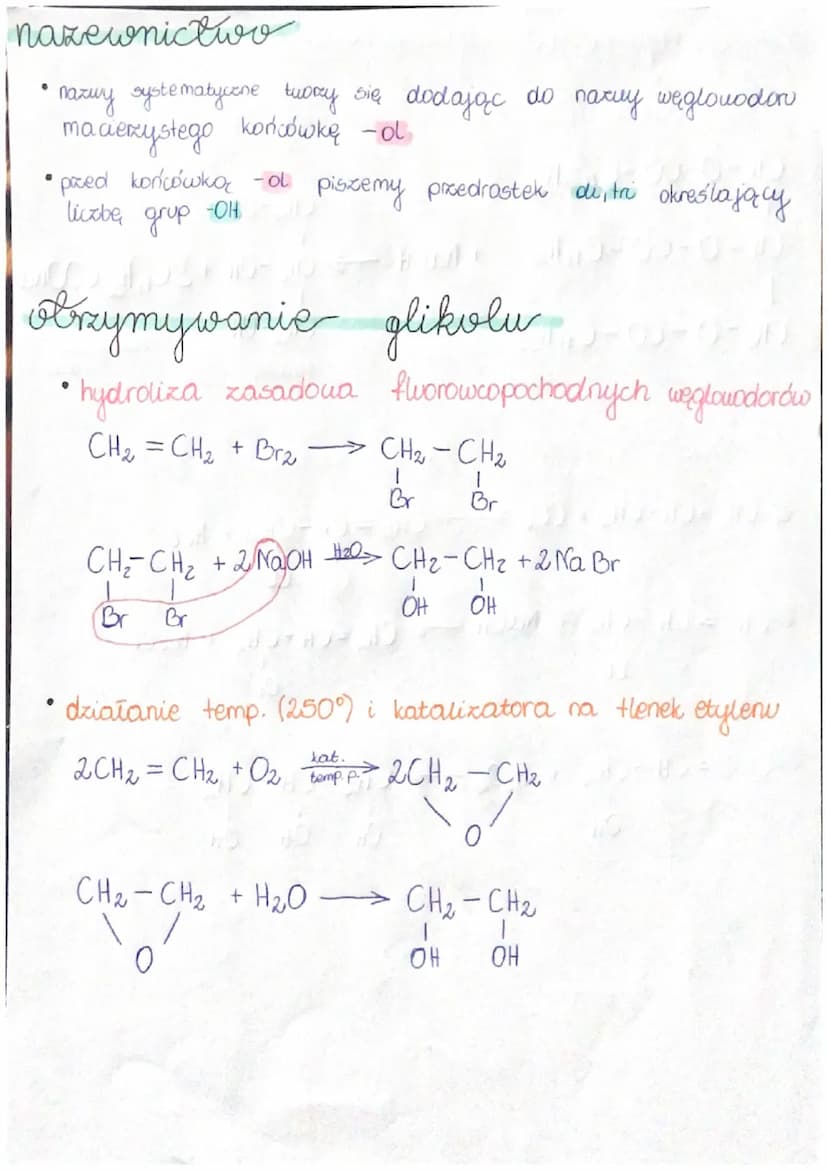 nazewnictwo
• nazwy systematyczne tworzy się dodając do nazwy węglowodoru
macierzystego końcówkę -ol
• przed końcówką -ol piszemy przedrostek di, tri określający
liczbę grup -OH
otrzymywanie glikolu
• hydroliza zasadowa fluorowcopochodnych węglowodorów
CH₂ = CH₂ + Br₂ → CH₂ - CH₂
Br Br
CH₂ - CH₂ + 2 NaOH H₂O → CH₂ - CH₂ + 2 NaBr
Br Br OH OH
• działanie temp. (250°) i katalizatora na tlenek etylenu
2CH₂ = CH₂ + O₂ kat. temp. p. → 2CH₂ - CH₂
O
CH₂ - CH₂ + H₂O → CH₂ - CH₂
O OH OH